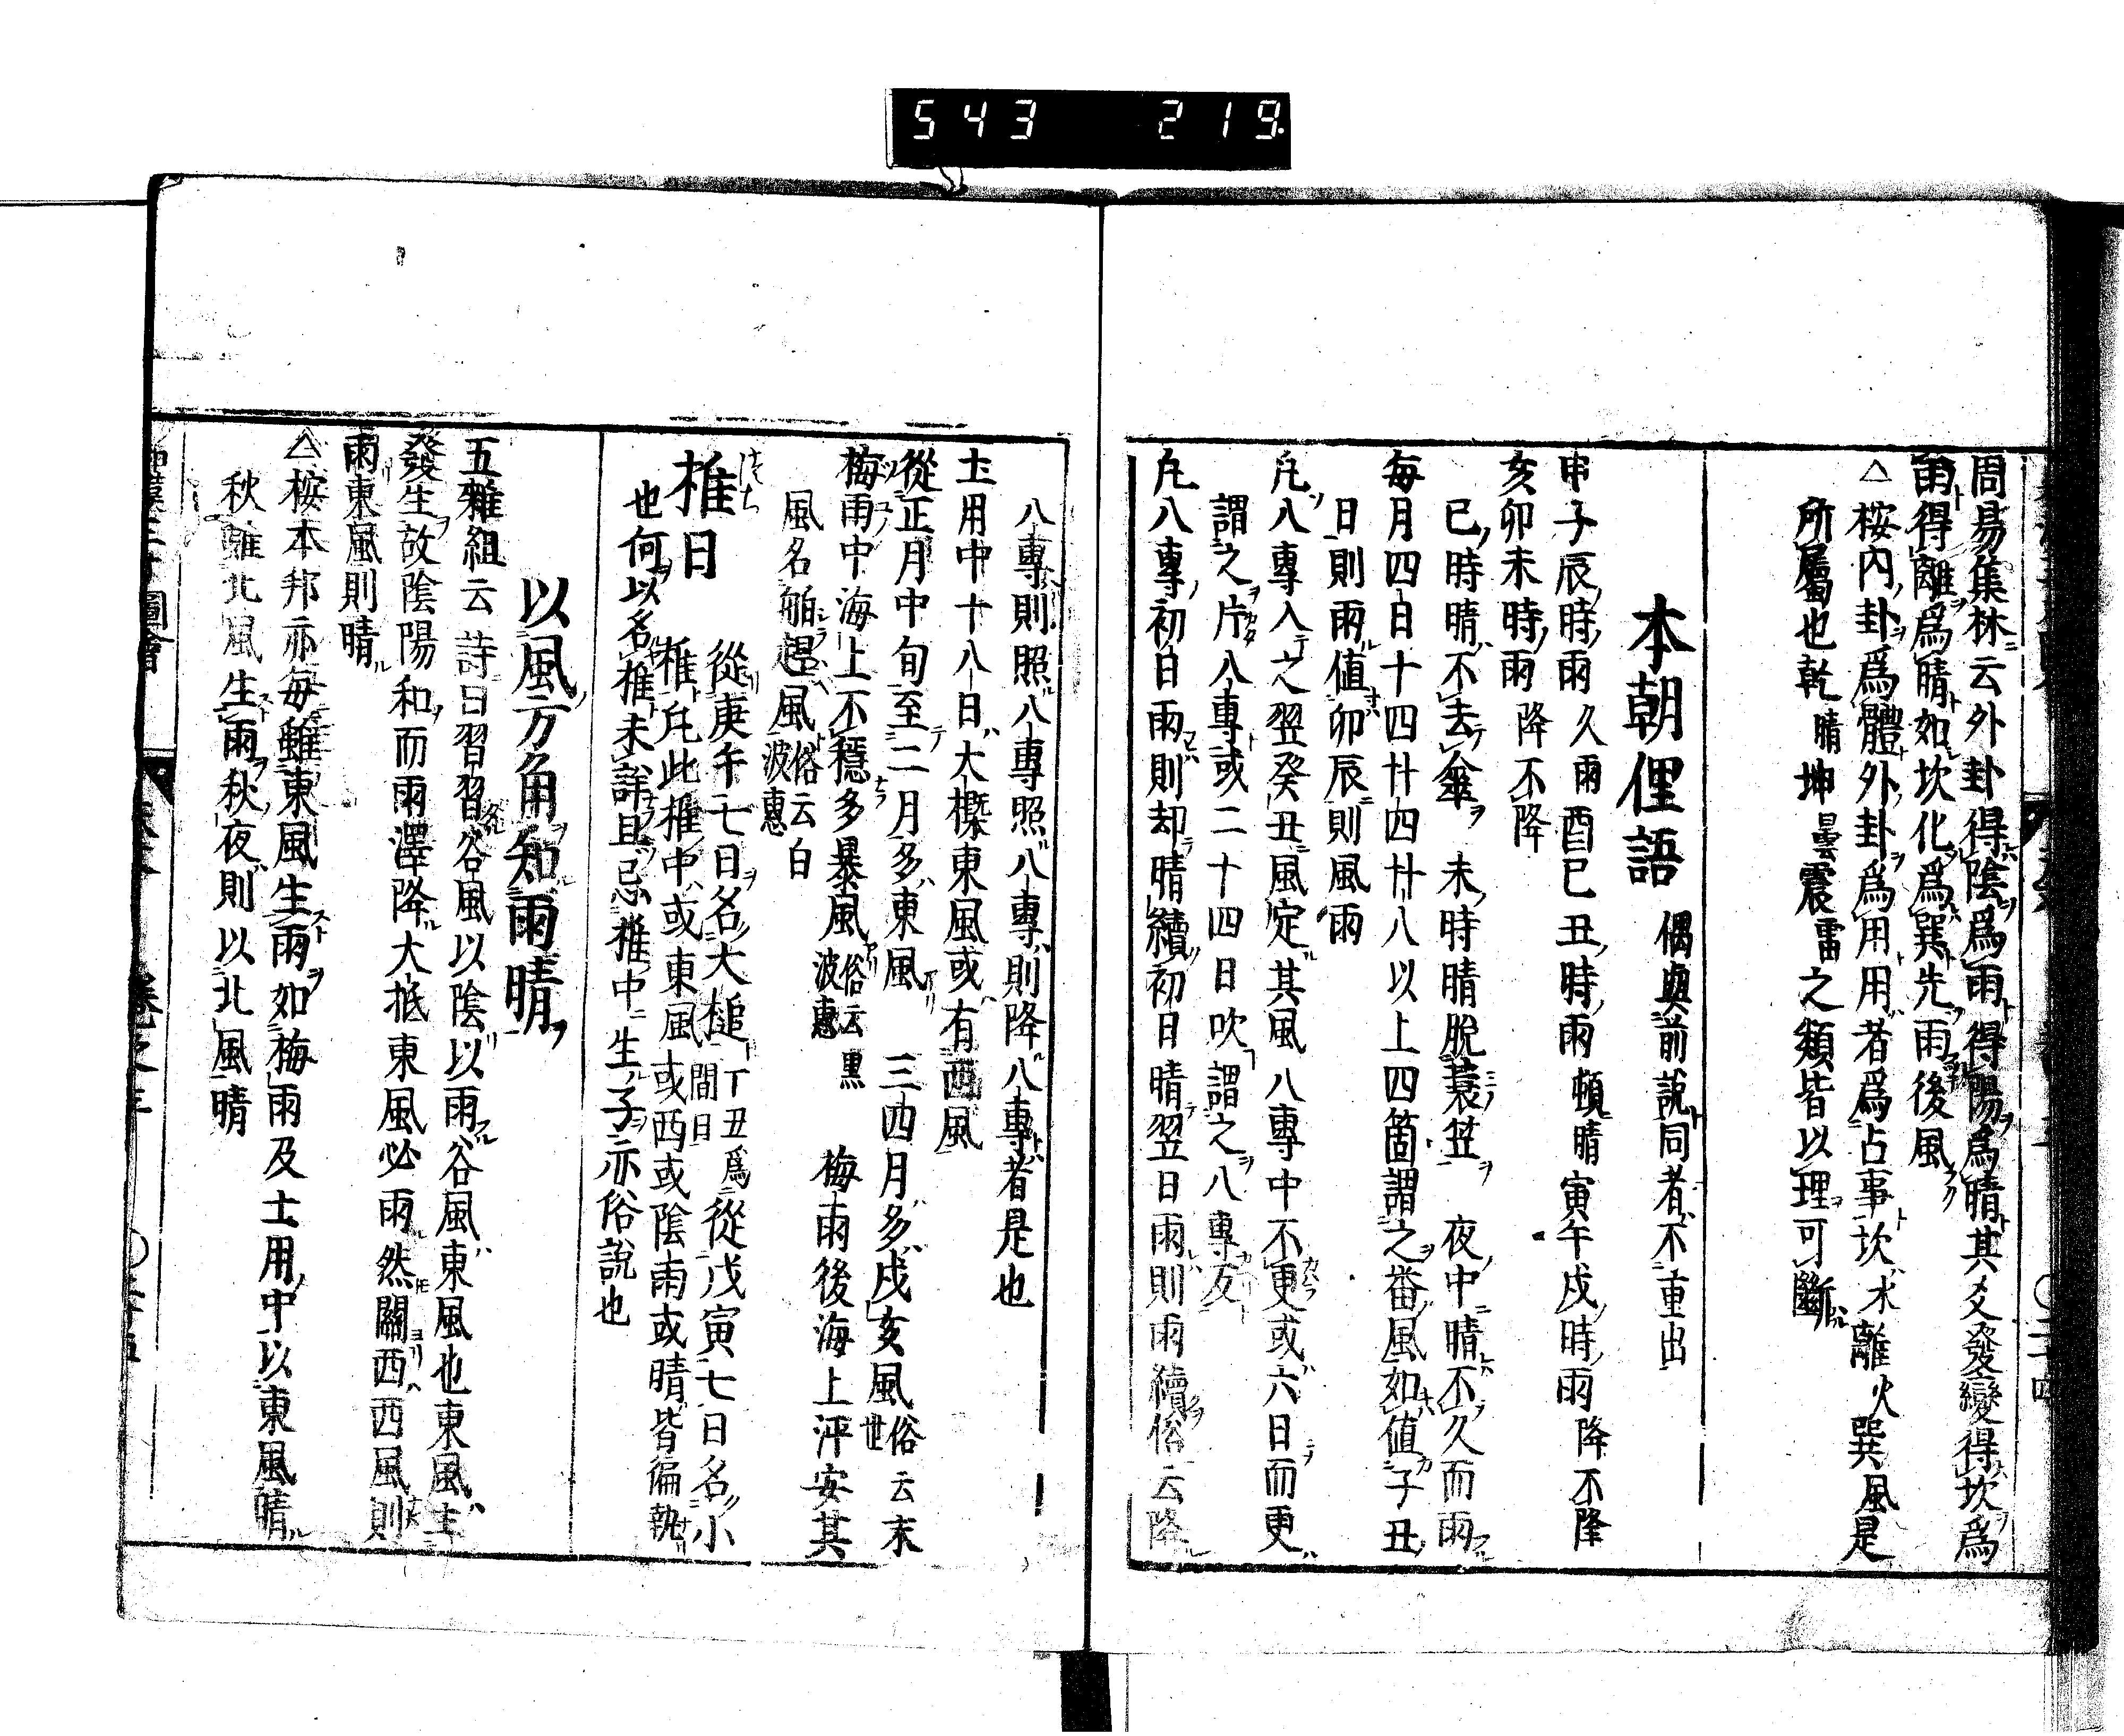 543 219
周易集林云外卦得陰爲雨得陽爲晴其爻發變得坎爲
雨得離爲晴如坎化爲巽先雨後風
△桉内卦爲體外卦爲用用者爲占事坎水離火巽風是
所屬也乾晴坤曇震雷之類皆以理可斷
本朝俚語 偶與前説同者不重出
申子辰時雨久雨 酉巳丑時雨頓晴 寅午戍時雨降不降
亥卯未時雨降不降
巳時晴不去傘 未時晴脱蓑笠 夜中晴不久而雨
毎月四日十四廿四廿八以上四箇謂之番風如値子丑
日則雨値卯辰則風雨
凡八專入之翌癸丑風定其風八專中不更或六日而更
謂之片八專或二十四日吹謂之八專反
凡八專初日雨則却晴續初日晴翌日雨則雨續俗云降
八專則照八專照八專則降八專者是也
土用中十八日大槩東風或有西風
從正月中旬至二月多東風 三四月多戍亥風俗云末世
梅雨中海上不穩多暴風俗云黒波惠 梅雨後海上泙安其
風名舶趠風俗云白波惠
椎日 從庚午七日名大槌丁丑爲間日從戊寅七日名小
椎凡此椎中或東風或西或陰雨或晴皆徧執
也何以名椎未詳且忌椎中生子亦俗説也
以風方角知雨晴
五雜組云詩曰習習谷風以陰以雨谷風東風也東風主
發生故陰陽和而雨澤降大抵東風必雨然關西西風則
雨東風則晴
△桉本邦亦毎雖東風生雨如梅雨及土用中以東風晴
秋雖北風生雨秋夜則以北風晴